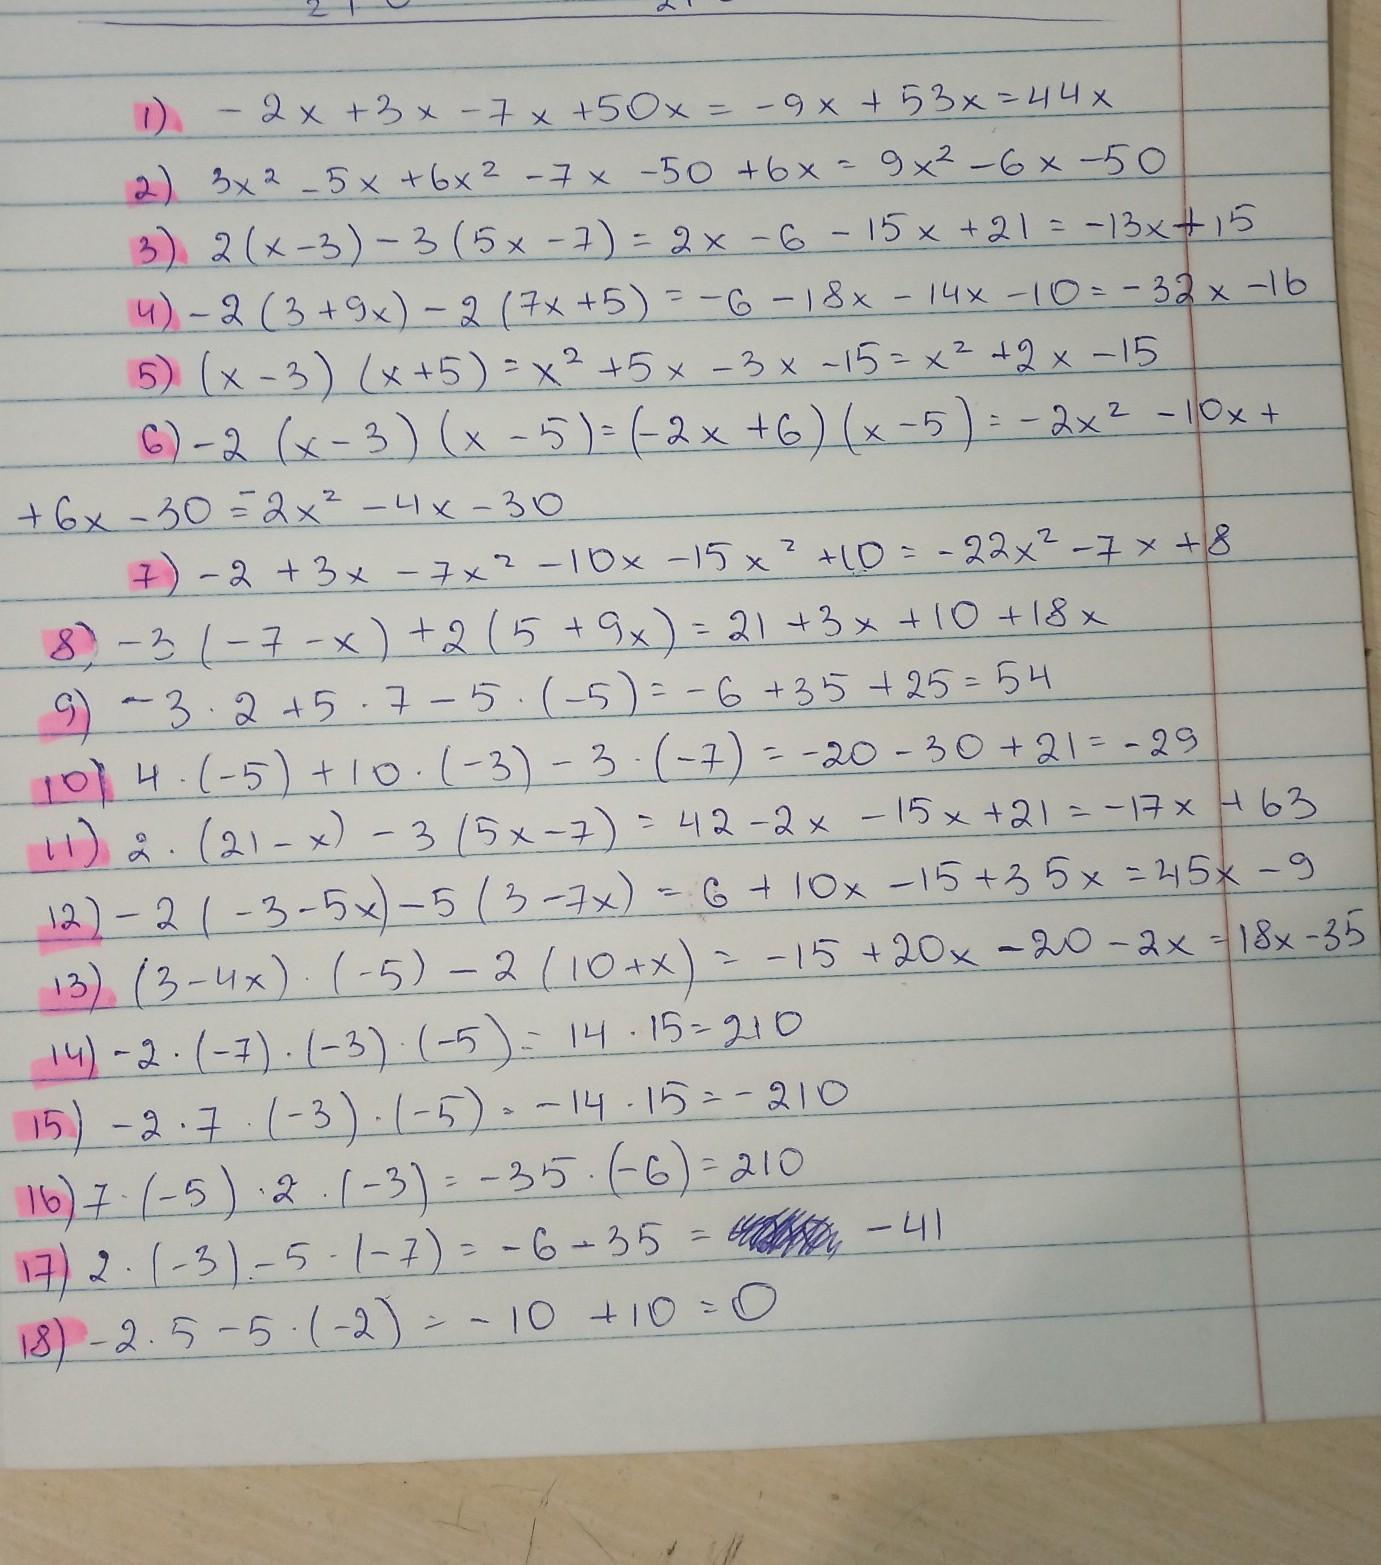 1) -2x + 3x - 7x + 50x = -9x + 53x = 44x
2) 3x² - 5x + 6x² - 7x - 50 + 6x = 9x² - 6x - 50
3) 2(x-3) - 3(5x-7) = 2x - 6 - 15x + 21 = -13x + 15
4) -2(3+9x) - 2(7x+5) = -6 - 18x - 14x - 10 = -32x - 16
5) (x-3)(x+5) = x² + 5x - 3x - 15 = x² + 2x - 15
6) -2(x-3)(x-5) = (-2x+6)(x-5) = -2x² - 10x +
+6x - 30 = -2x² - 4x - 30
7) -2 + 3x - 7x² - 10x - 15x² + 10 = -22x² - 7x + 8
8) -3(-7-x) + 2(5+9x) = 21 + 3x + 10 + 18x
9) -3 · 2 + 5 · 7 - 5 · (-5) = -6 + 35 + 25 = 54
10) 4 · (-5) + 10 · (-3) - 3 · (-7) = -20 - 30 + 21 = -29
11) 2 · (21-x) - 3(5x-7) = 42 - 2x - 15x + 21 = -17x + 63
12) -2(-3-5x) - 5(3-7x) = 6 + 10x - 15 + 35x = 45x - 9
13) (3-4x) · (-5) - 2(10+x) = -15 + 20x - 20 - 2x = 18x - 35
14) -2 · (-7) · (-3) · (-5) = 14 · 15 = 210
15) -2 · 7 · (-3) · (-5) = -14 · 15 = -210
16) 7 · (-5) · 2 · (-3) = -35 · (-6) = 210
17) 2 · (-3) - 5 · (-7) = -6 - 35 = -41
18) -2 · 5 - 5 · (-2) = -10 + 10 = 0